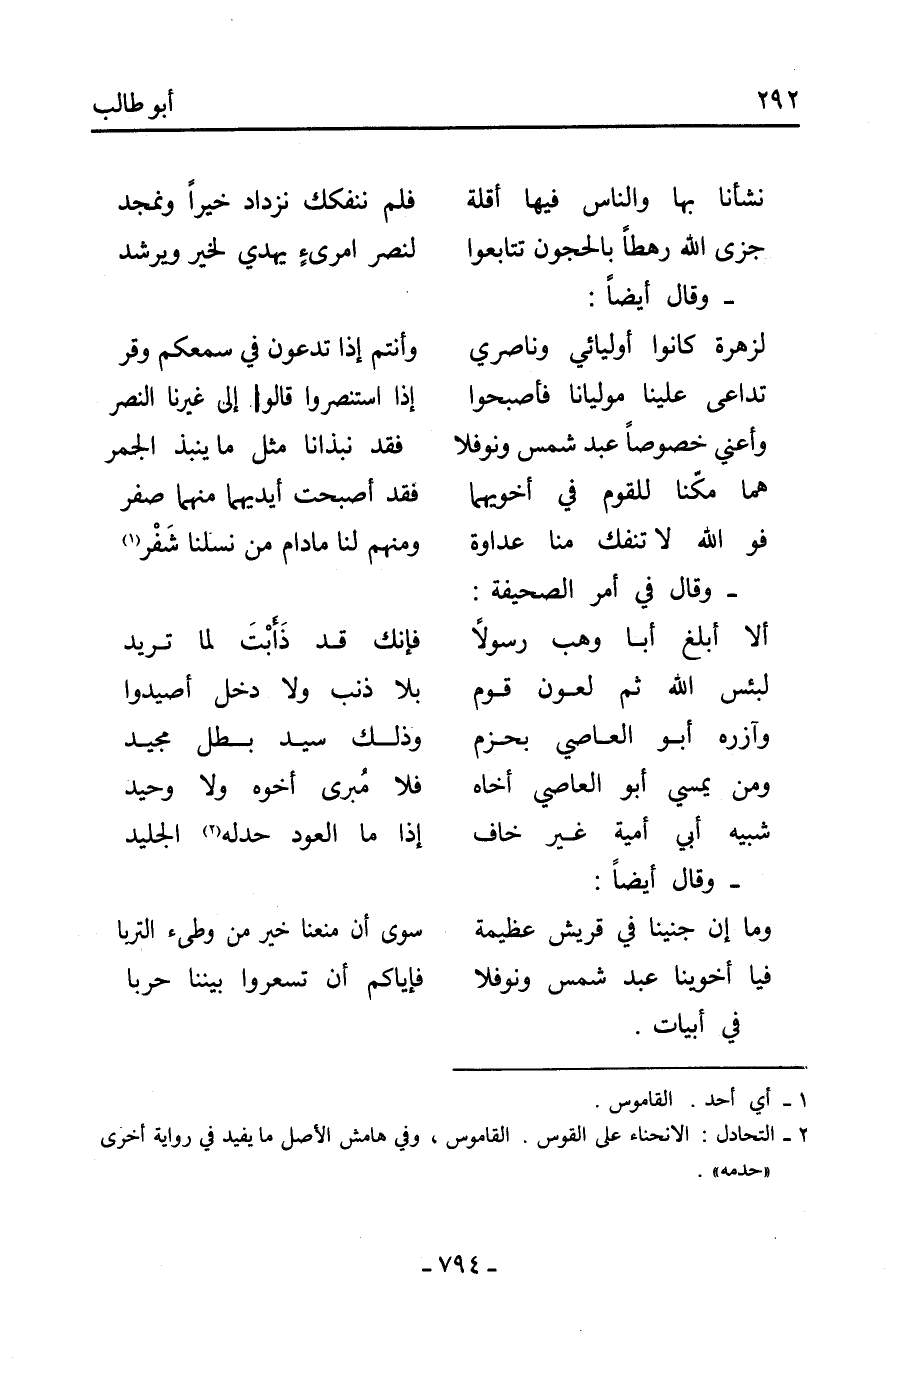 ٢٩٢ أبو طالب
نشأنا بها والناس فيها أقلة فلم ننفكك نزداد خيراً ونمجد
جزى الله رهطاً بالحجون تتابعوا لنصر امرىءٍ يهدي لخير ويرشد
ـ وقال أيضاً :
لزهرة كانوا أوليائي وناصري وأنتم إذا تدعون في سمعكم وقر
تداعى علينا موليانا فأصبحوا إذا استنصروا قالوا إلى غيرنا النصر
وأعني خصوصاً عبد شمس ونوفلا فقد نبذانا مثل ما ينبذ الجمر
هما مكّنا للقوم في أخويهما فقد أصبحت أيديهما منهما صفر
فو الله لا تنفك منا عداوة ومنهم لنا مادام من نسلنا شَفْر(١)
ـ وقال في أمر الصحيفة :
ألا أبلغ أبا وهب رسولاً فإنك قد ذَأَبْتَ لما تريد
لبئس الله ثم لعون قوم بلا ذنب ولا دخل أصيدوا
وآزره أبو العاصي بحزم وذلك سيد بطل مجيد
ومن يمسي أبو العاصي أخاه فلا مُبرى أخوه ولا وحيد
شبيه أبي أمية غير خاف إذا ما العود حدله(٢) الجليد
ـ وقال أيضاً :
وما إن جنينا في قريش عظيمة سوى أن منعنا خير من وطىء التربا
فيا أخوينا عبد شمس ونوفلا فإياكم أن تسعروا بيننا حربا
في أبيات .
١ ـ أي أحد . القاموس .
٢ ـ التحادل : الانحناء على القوس . القاموس ، وفي هامش الأصل ما يفيد في رواية أخرى
«حدمه» .
ـ ٧٩٤ ـ